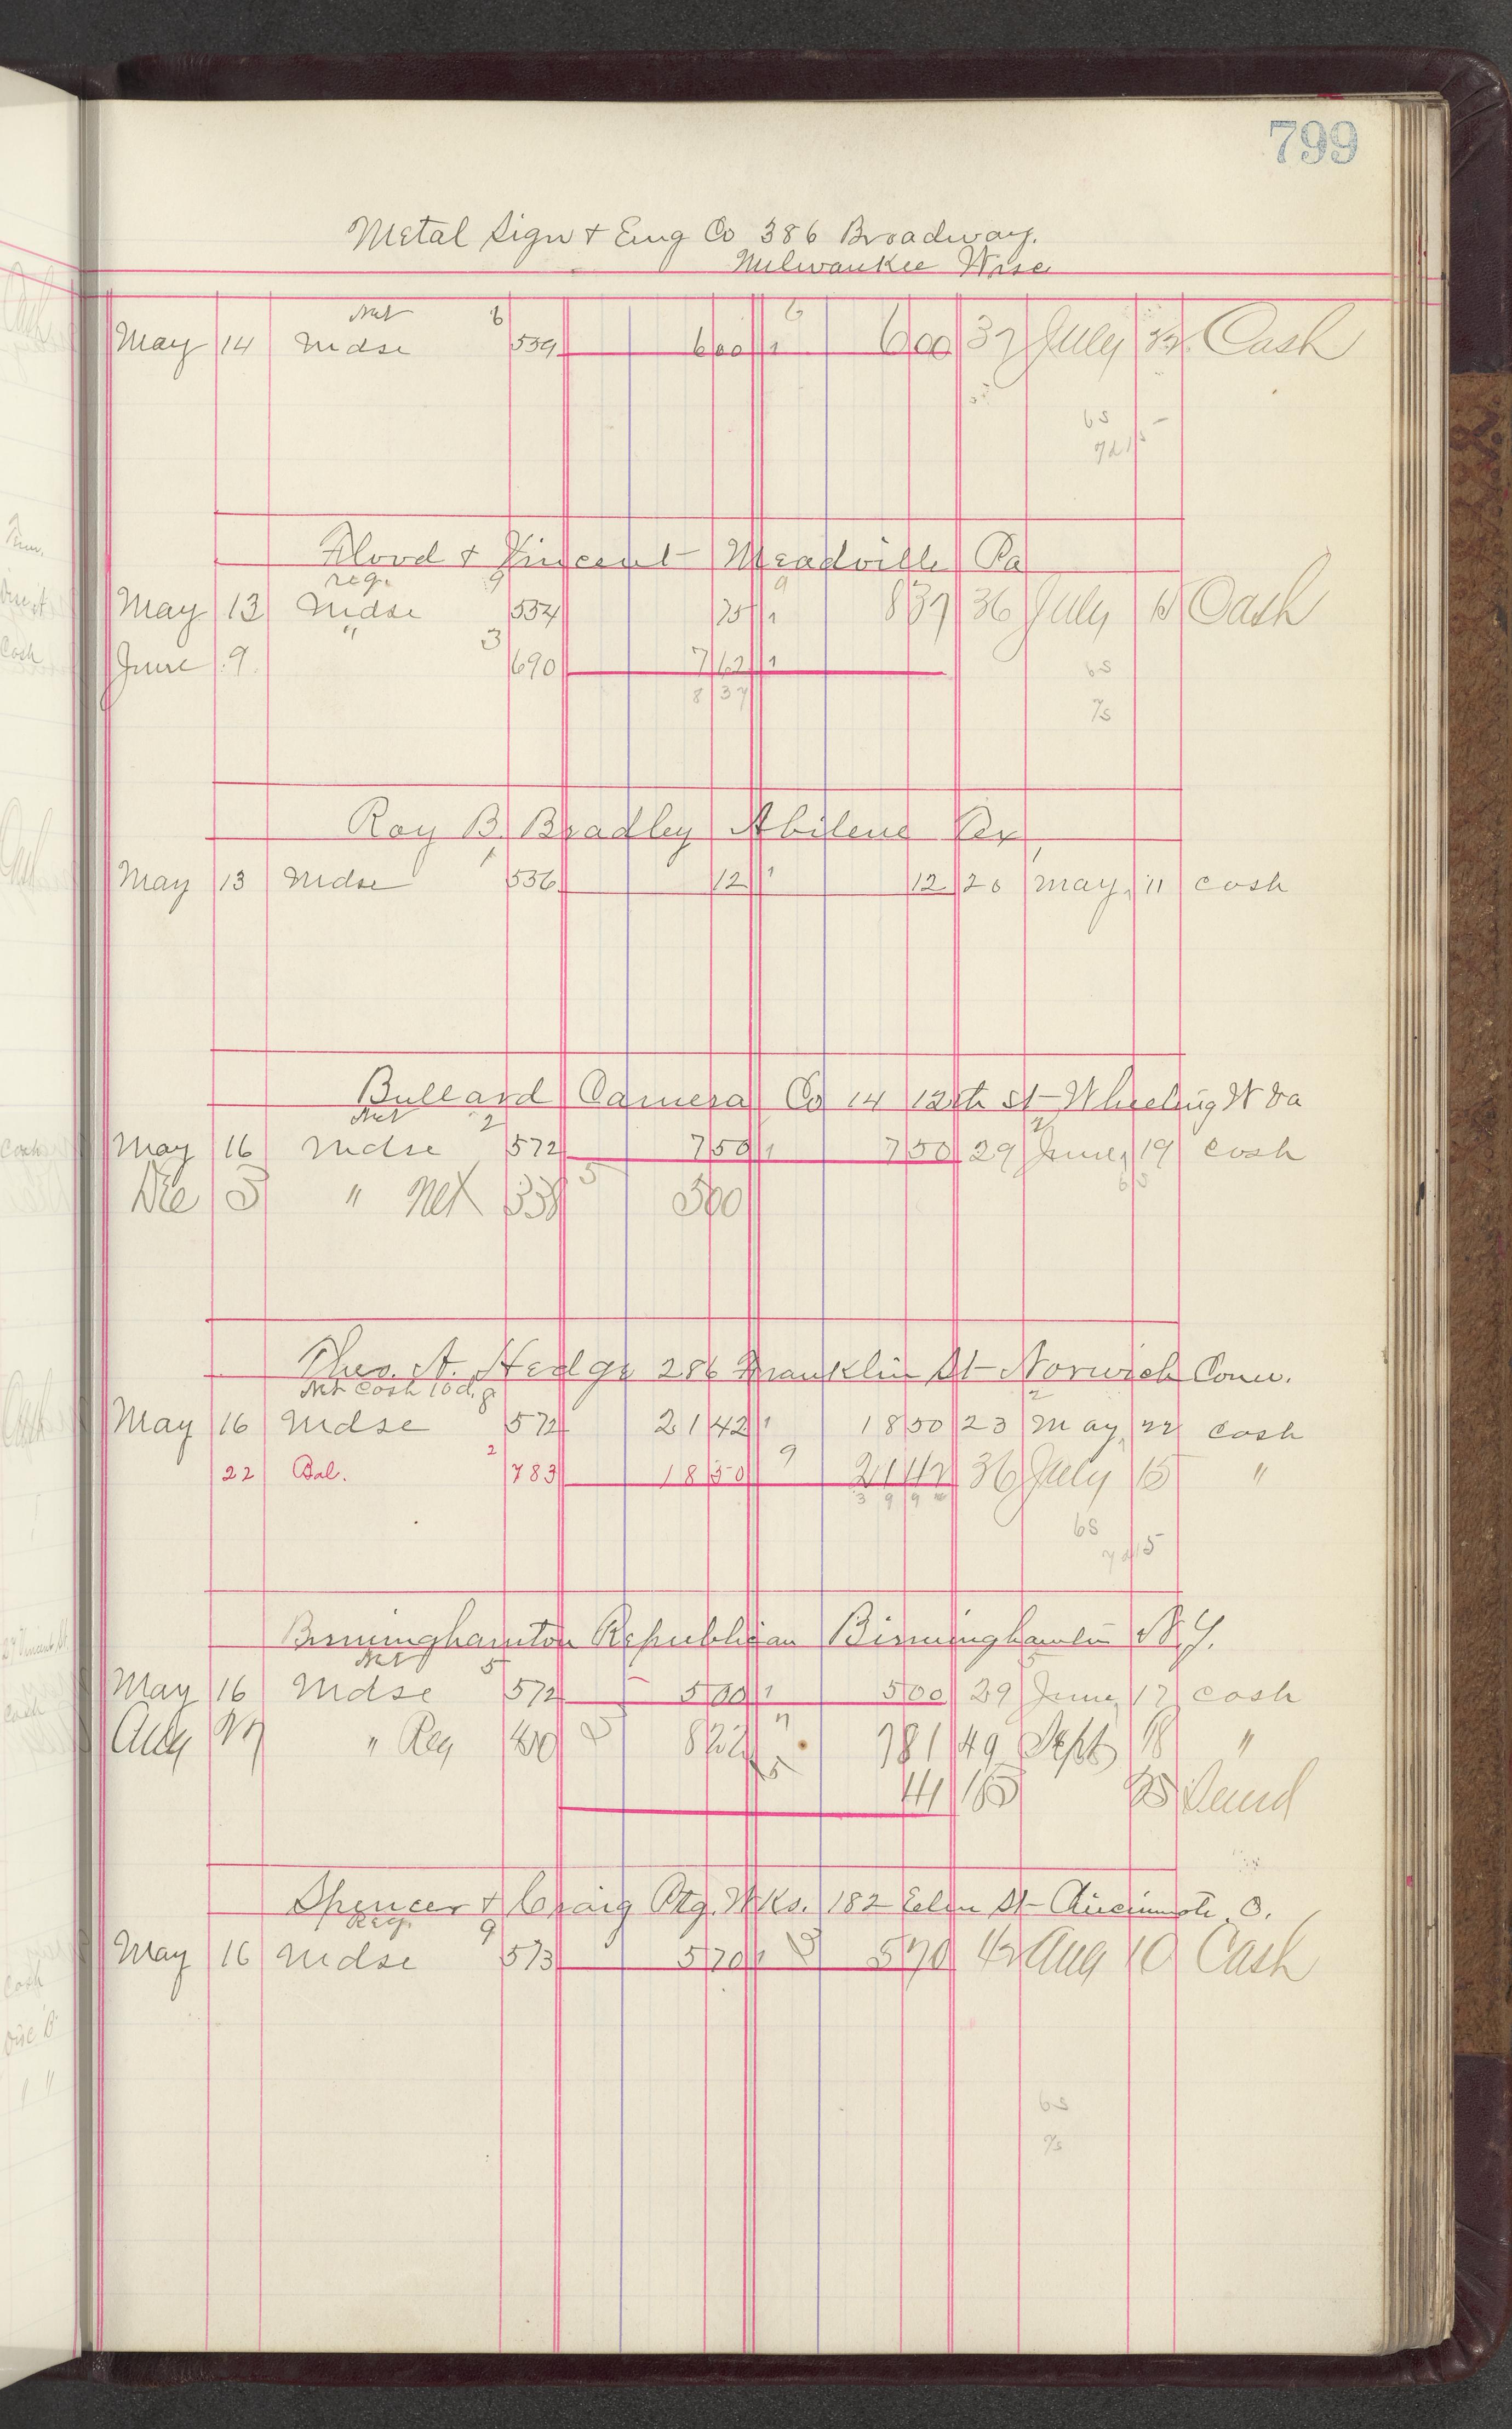 799
Metal Sign & Eng Co 386 Broadway.
Milwaukee Wisc
Net 6 6
May 14 Mdse 539 6 00 1 6 00 37 July Cash
6s
Flood & Vincent Meadville Pa
reg. 9 9
May 13 Mdse 534 75 1 8 37 36 July 15 Cash
June 9 " 3 690 7 62 1
8 37
6s
7s
Roy B. Bradley Abilene Tex
May 13 Mdse 1 536 12 1 12 20 May 11 cash
Bullard Camera Co 14 12th St Wheeling W Va
Net 2 2
May 16 Mdse 572 7 50 1 7 50 29 June 19 cash
Dec 3 " Net 338 5 5 00
6s
Theo. A. Hedge 286 Franklin St Norwich Conn.
Net Cash 10 d. 8 2
May 16 Mdse 572 21 42 1 18 50 23 May 22 cash
22 Bal. 2 783 18 50 9 21 42 36 July 15 "
39 92
6s
Birminghamton Republican Birminghamton N.Y.
Net 5 5
May 16 Mdse 572 5 00 1 5 00 29 June 17 cash
Aug 27 " Reg 8 22 7 7 81 49 Sept 18 "
5 41 165 25
Spencer & Craig Ptg. Wks. 182 Elm St Cincinnati O.
Reg. 9
May 16 Mdse 573 5 70 1 8 5 70 42 Aug 10 Cash
6s
7s